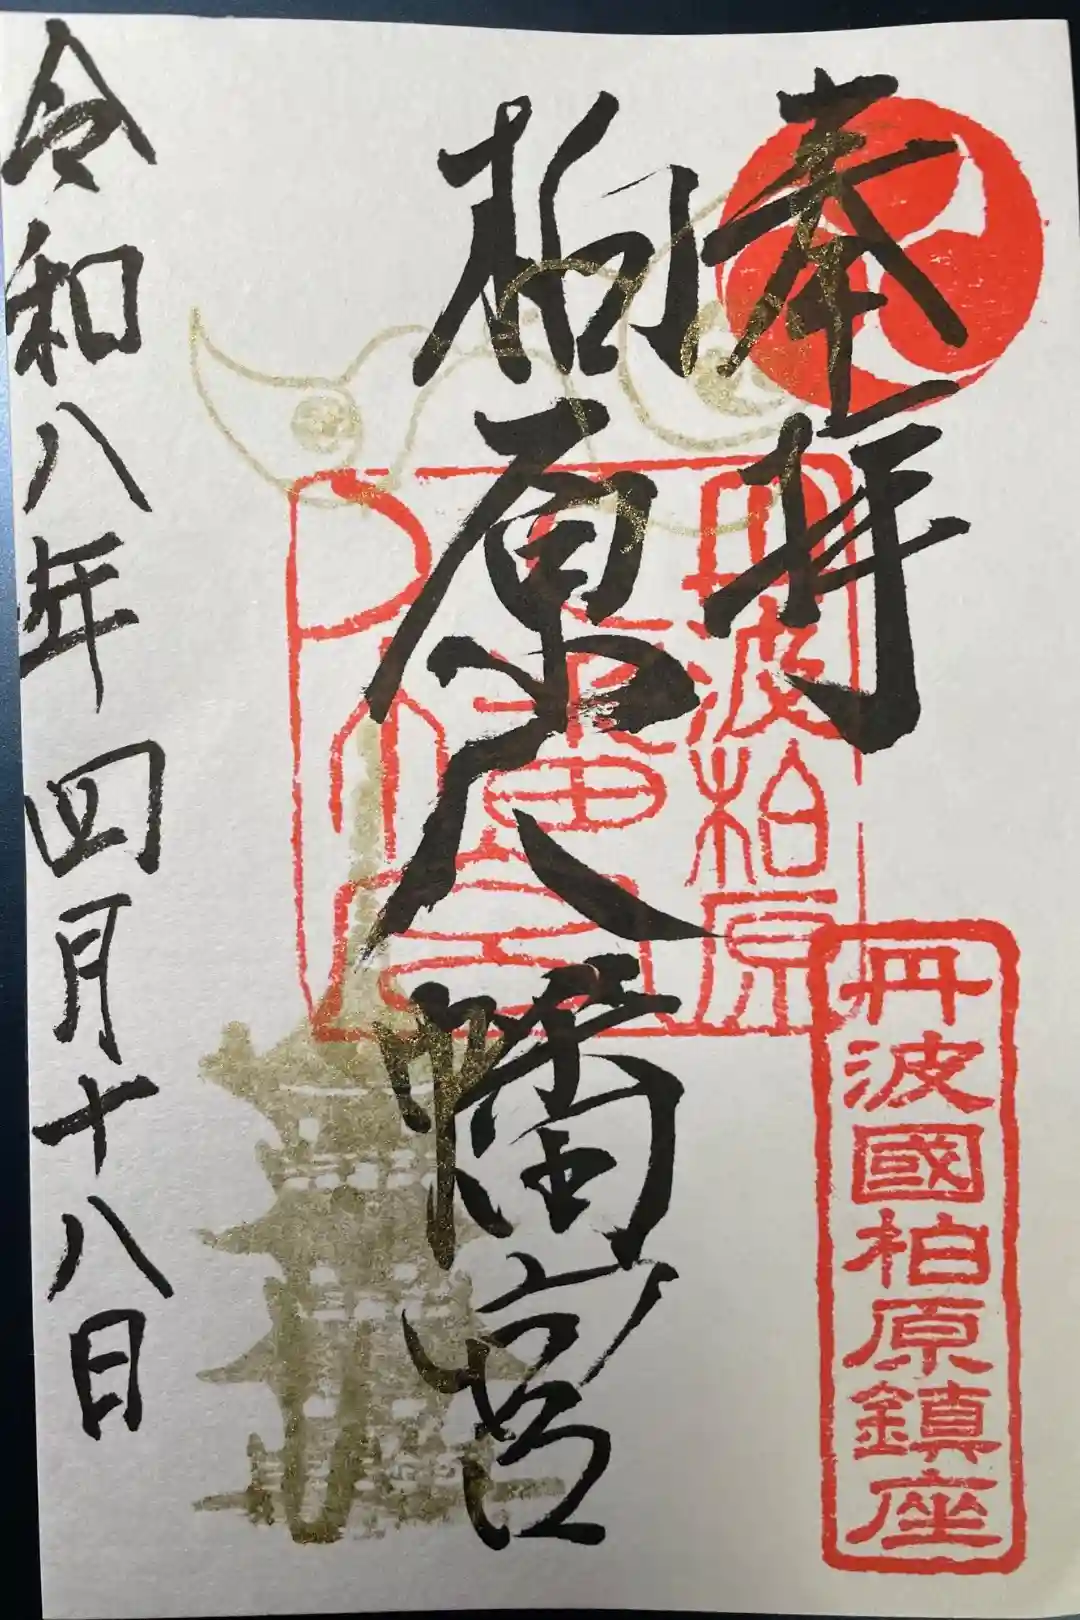 奉拝
丹波國柏原鎮座
丹波柏原
八幡宮
柏原八幡宮
令和八年四月十八日